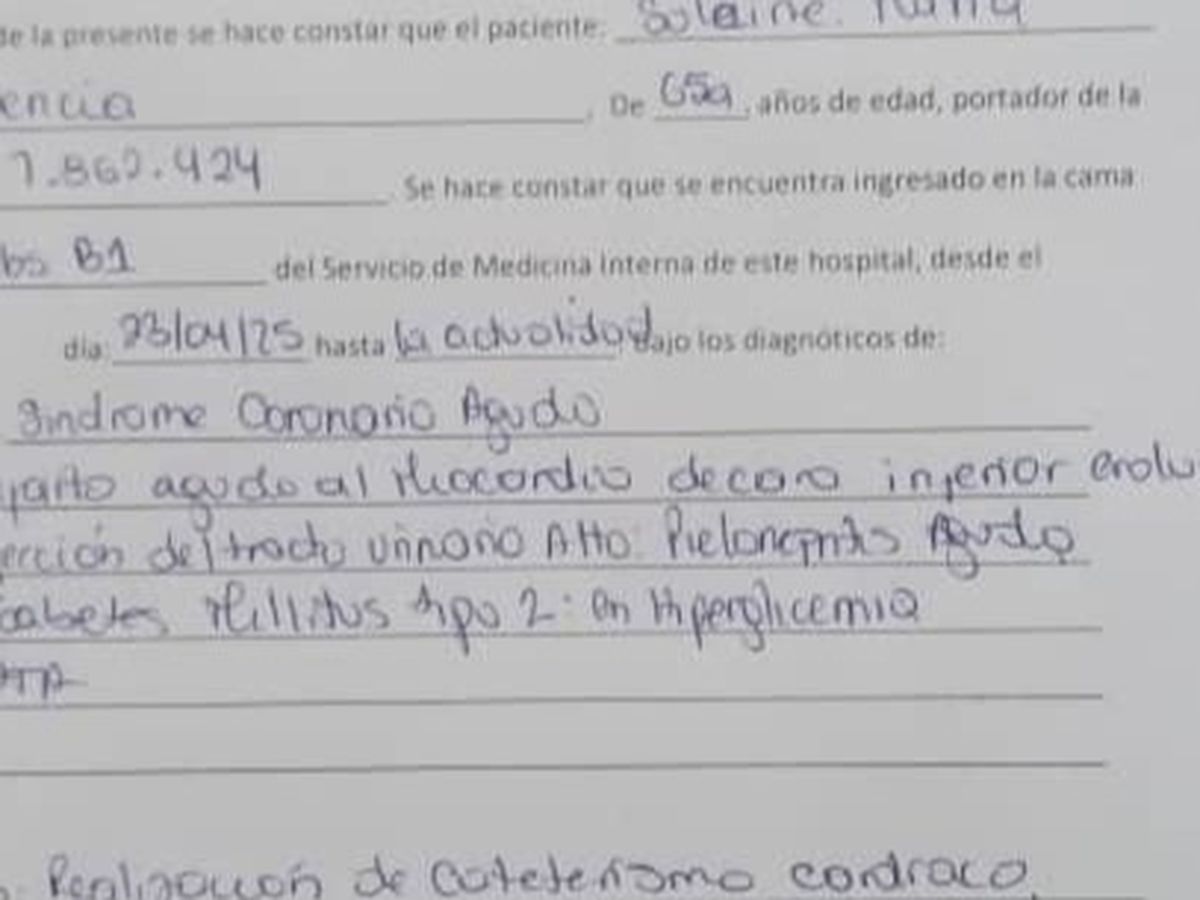 de la presente se hace constar que el paciente:
encia, De 65a, años de edad, portador de la
7.862.424 Se hace constar que se encuentra ingresado en la cama
bs B1 del Servicio de Medicina Interna de este hospital, desde el
dia: 23/04/25 hasta la actualidad, bajo los diagnóticos de:
Sindrome Coronario Agudo
agudo al Miocardio de cara inferior evolu
ección del tracto urinario Alto: Pielonefritis Aguda
iabetes Mellitus tipo 2: en Hiperglicemia
HTA
Realización de Cateterismo cardiaco.